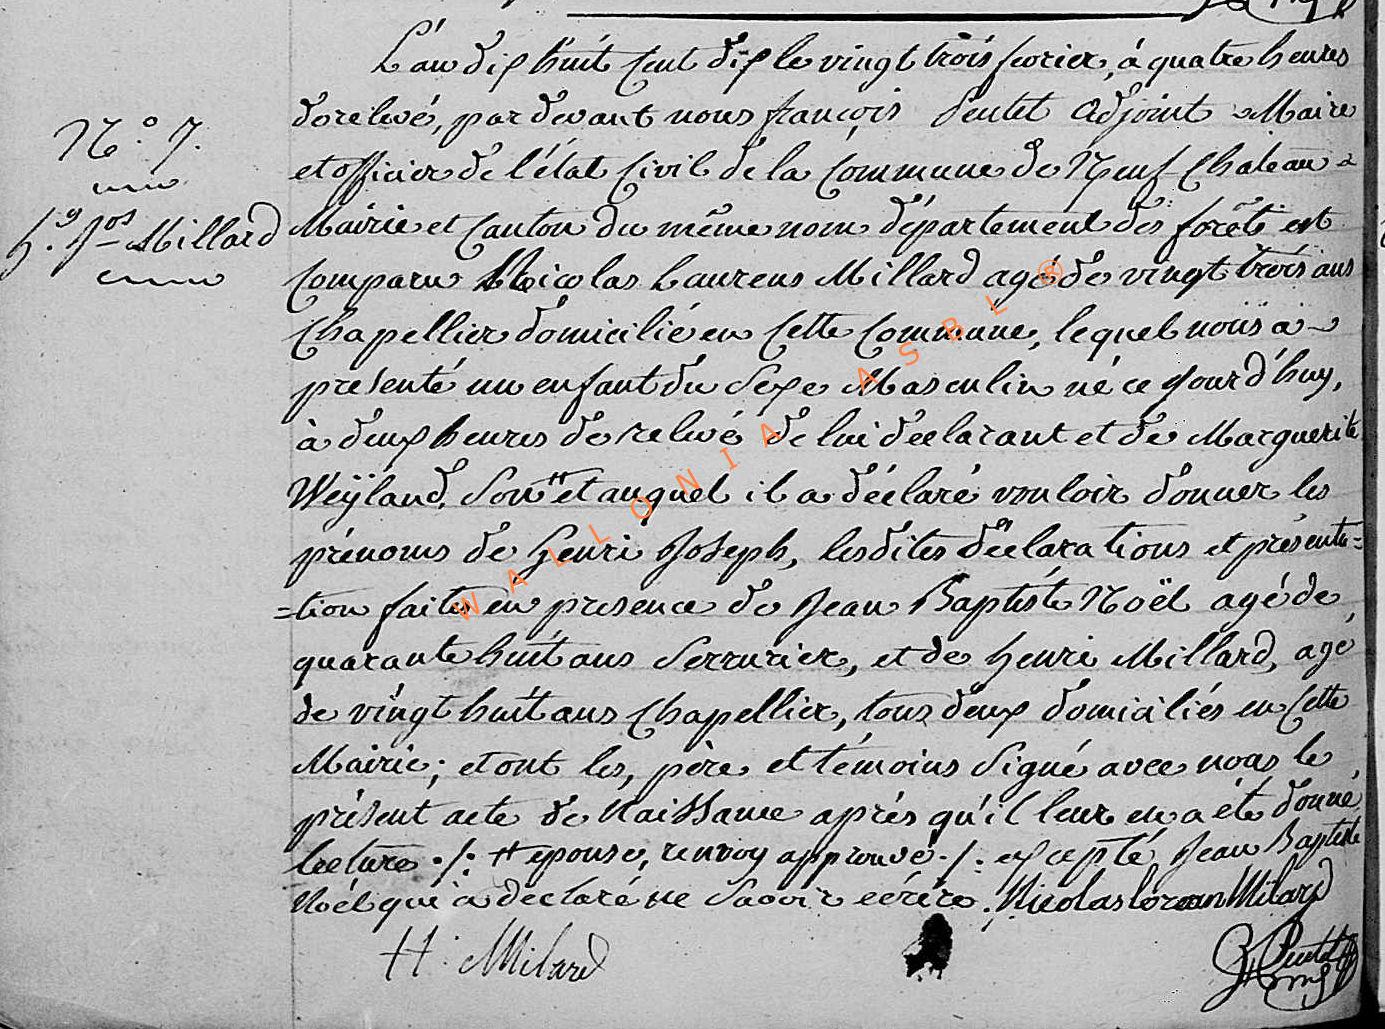 L'an dix huit Cent dix le vingt trois fevrier, à quatre heures
de relevé, par devant nous françois Pentet Adjoint Maire
et officier de l'état Civil de la Commune de Neuf-Chateau
N.° 7.
h.y Jos Millard
Mairie et Canton du même nom département des forêts est
Comparu Nicolas Laurens Millard agé de vingt trois ans
Chapellier domicilié en Cette Commune, lequel nous a
présenté un enfant du Sexe Masculin né ce jourd'huy,
à deux heures de relevé de lui declarant et de Marguerite
Weÿland, Son # et auquel il a déclaré vouloir donner les
prénoms de henri Joseph, lesdites déclarations et présenta=
=tion faites en presence de Jean Baptiste Noël agé de
quarante huit ans Serrurier, et de henri Millard, agé
de vingt huit ans Chapellier, tous deux domiciliés en Cette
Mairie; et ont les, père et témoins Signé avec nous le
présent acte de Naissance après qu'il leur en a été donné
lecture ./. # epouse, renvoy approuvé ./. excepté Jean Baptiste
Noël qui a declaré ne Savoir ecrire. Nicolas loran Milard
H. Milard
WALLONIA ASBL ®